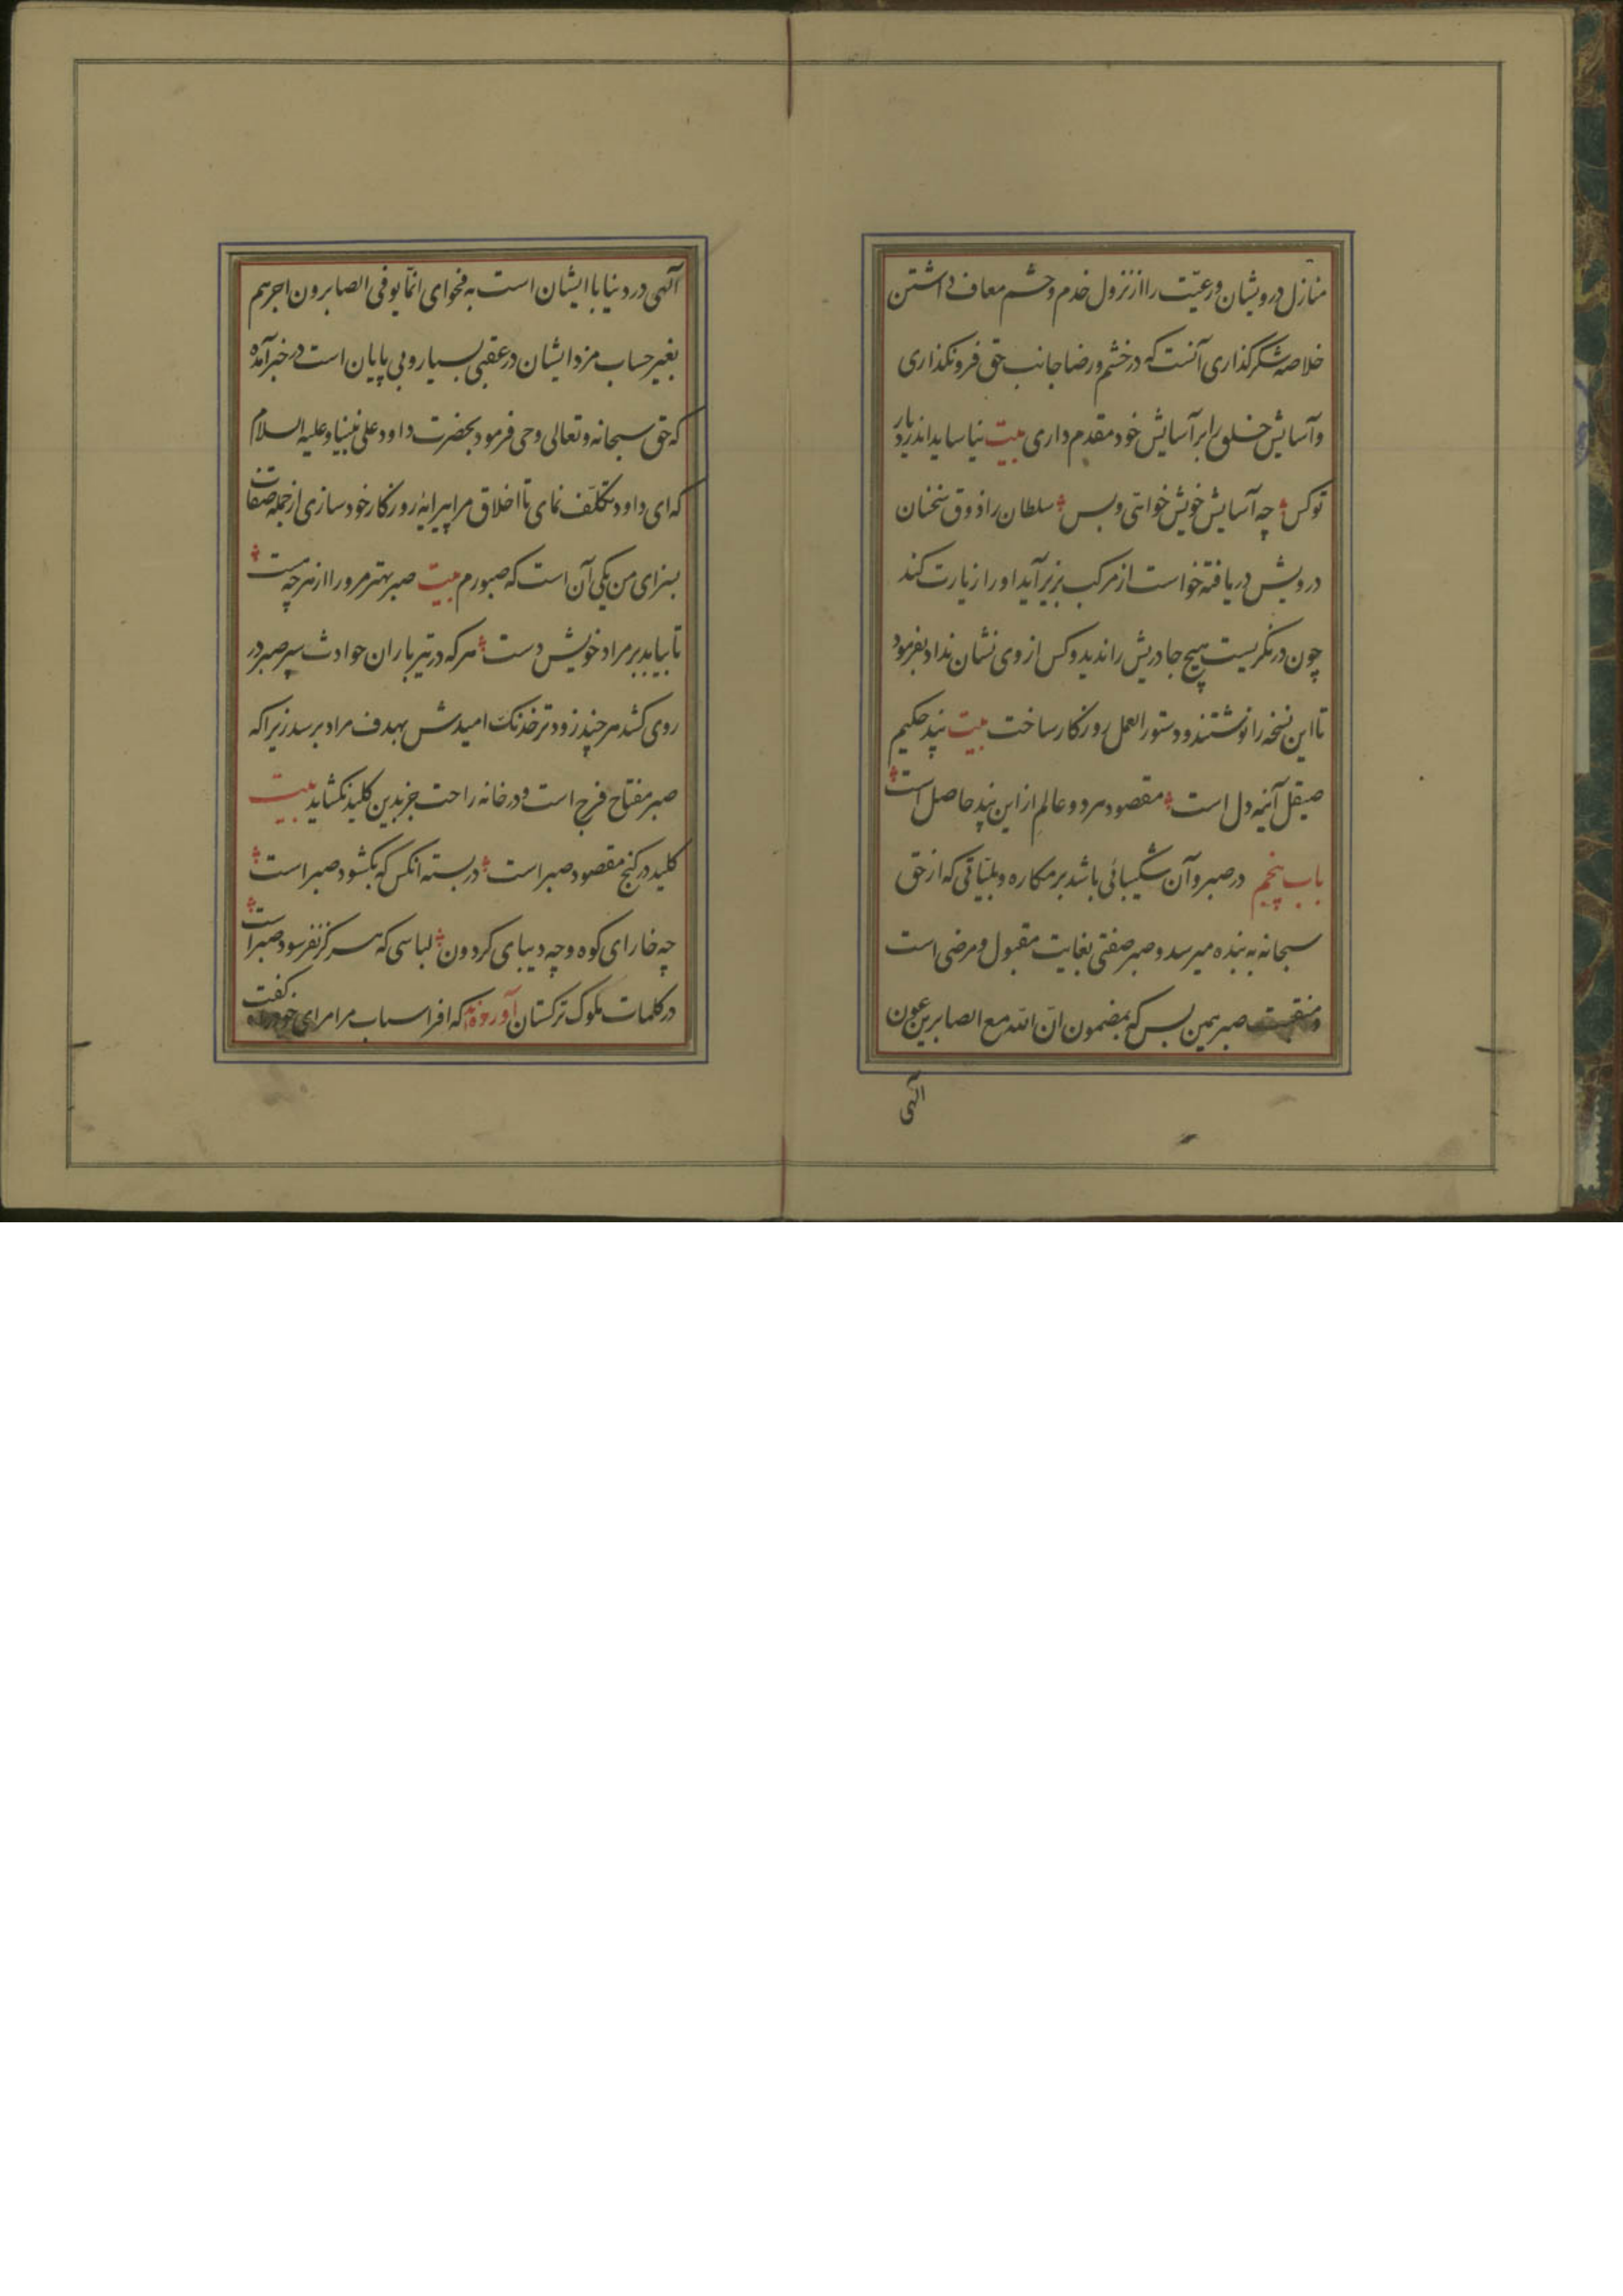 منازل درویشان و رعیّت را از نزول خدم و حشم معاف داشتن
خلاصه شکرکذاری آنست که در خشم و رضا جانب حق فرونکذاری
وآسایش خلق را بر آسایش خود مقدم داری بیت نیاساید اندر دیار
توکس چه آسایش خویش خواهی و بس سلطان را ذوق سخنان
درویش دریافته خواست از مرکب بزیر آید او را زیارت کند
چون درنکریست هیچ جا درویش را ندید وکس از وی نشان نداد بفرمود
تا این نسخه را نوشتند و دستور العمل روزکار ساخت بیت پند حکیم
صیقل آئینه دل است مقصود هر دو عالم از این پند حاصل است
باب پنجم در صبر و آن شکیبائی باشد بر مکاره و بلیّاتی که از حق
سبحانه به بنده میرسد و صبر صفتی بغایت مقبول و مرضی است
و منقبت صبر همین بس که بمضمون انّ اللّه مع الصابرین عون
آلهی
آلهی در دنیا با ایشان است به فحوای انّما یوفی الصابرون اجرهم
بغیر حساب مزد ایشان در عقبی بسیار و بی پایان است در خبر آمده
که حق سبحانه و تعالی وحی فرمود بحضرت داود علی نبینا و علیه السلام
که ای داود تکلّف نمای تا اخلاق مرا پیرایهٔ روزکار خود سازی از جمله صفات
بسزای من یکی آن است که صبورم بیت صبر بهتر مرو را از هر چه هست
تا بیابد بر مراد خویش دست هر که در تیرباران حوادث سپر صبر در
روی کشد هر چند زودتر خدنک امیدش بهدف مراد برسد زیرا که
صبر مفتاح فرج است و در خانه راحت جز بدین کلید نکشاید بیت
کلید در کنج مقصود صبر است در بسته انکس که بکشود صبر است
چه خارای کوه و چه دیبای کردون لباسی که هرکز نفرسود صبر است
در کلمات ملوک ترکستان آورده‌اند که افراسیاب مر امرای خود را کفت